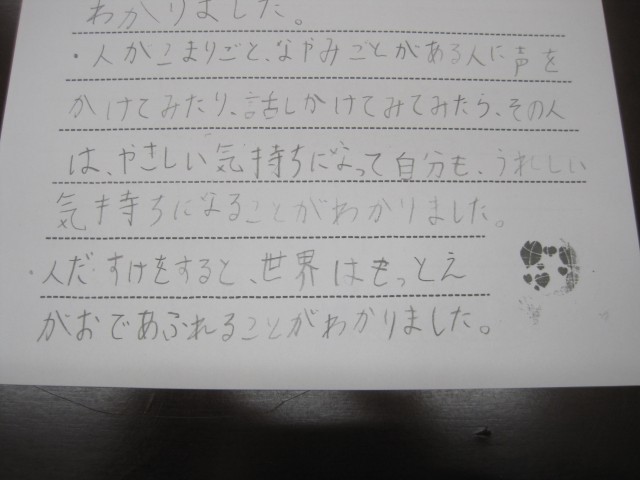 わかりました。
・人がこまりごと、なやみごとがある人に声を
かけてみたり、話しかけてみてみたら、その人
は、やさしい気持ちになって自分も、うれしい
気持ちになることがわかりました。
・人だすけをすると、世界はもっとえ
がおであふれることがわかりました。